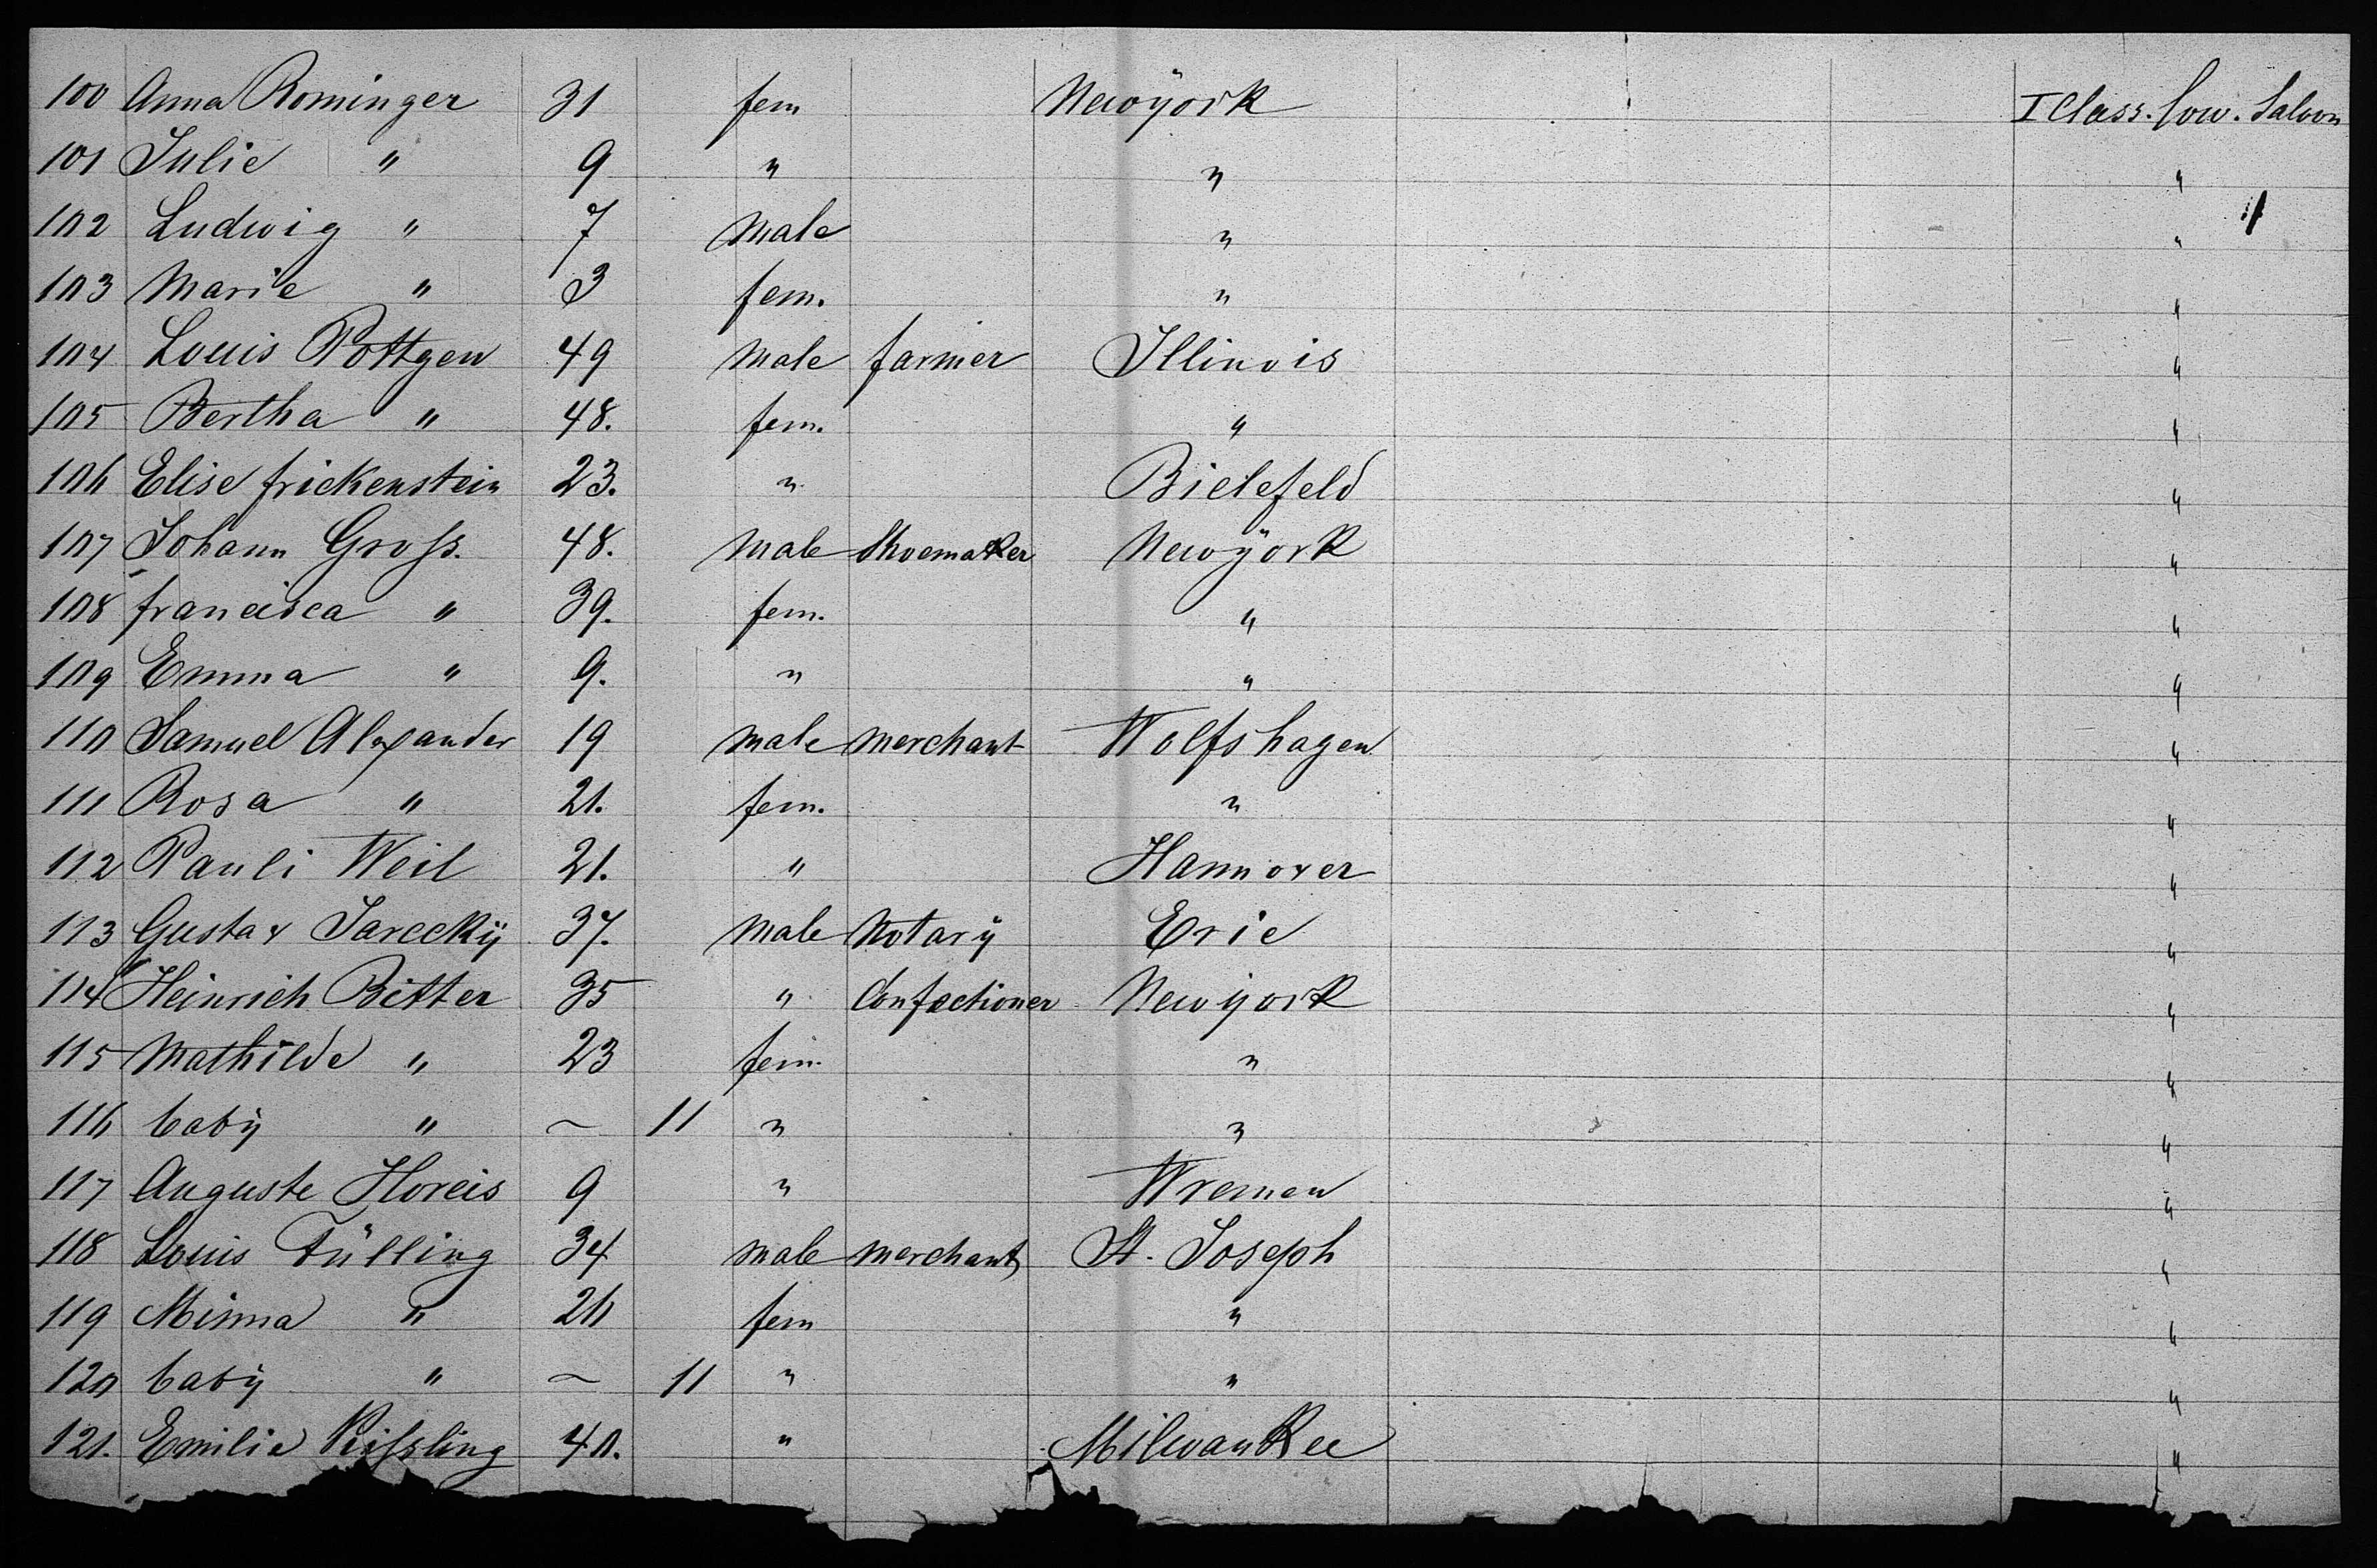 100 Anna Rominger 31 fem Newÿork I Class. low. Saloon
101 Julie " 9 " " "
102 Ludwig " 7 male " "
103 Marie " 3 fem. " "
104 Louis Pottgen 49 male farmer Illinois "
105 Bertha " 48. fem. " "
106 Elise frickenstein 23. " Bielefeld "
107 Johann Groſs. 48. male Shoemaker Newÿork "
108 francisca " 39. fem. " "
109 Emma " 9. " " "
110 Samuel Alexander 19 male merchant Wolfshagen "
111 Rosa " 21. fem. " "
112 Pauli Weil 21. " Hannover "
113 Gustav Jareckÿ 37. male Notarÿ Erie "
114 Heinrich Bitter 35 " Confectioner Newÿork "
115 Mathilde " 23 fem. " "
116 babÿ " ~ 11 " " "
117 Auguste Horeis 9 " Wremen "
118 Louis Fülling 34 male merchant St. Joseph "
119 Minna " 26 fem " "
120 babÿ " ~ 11 " " "
121. Emilie 40. " Milwaukee "